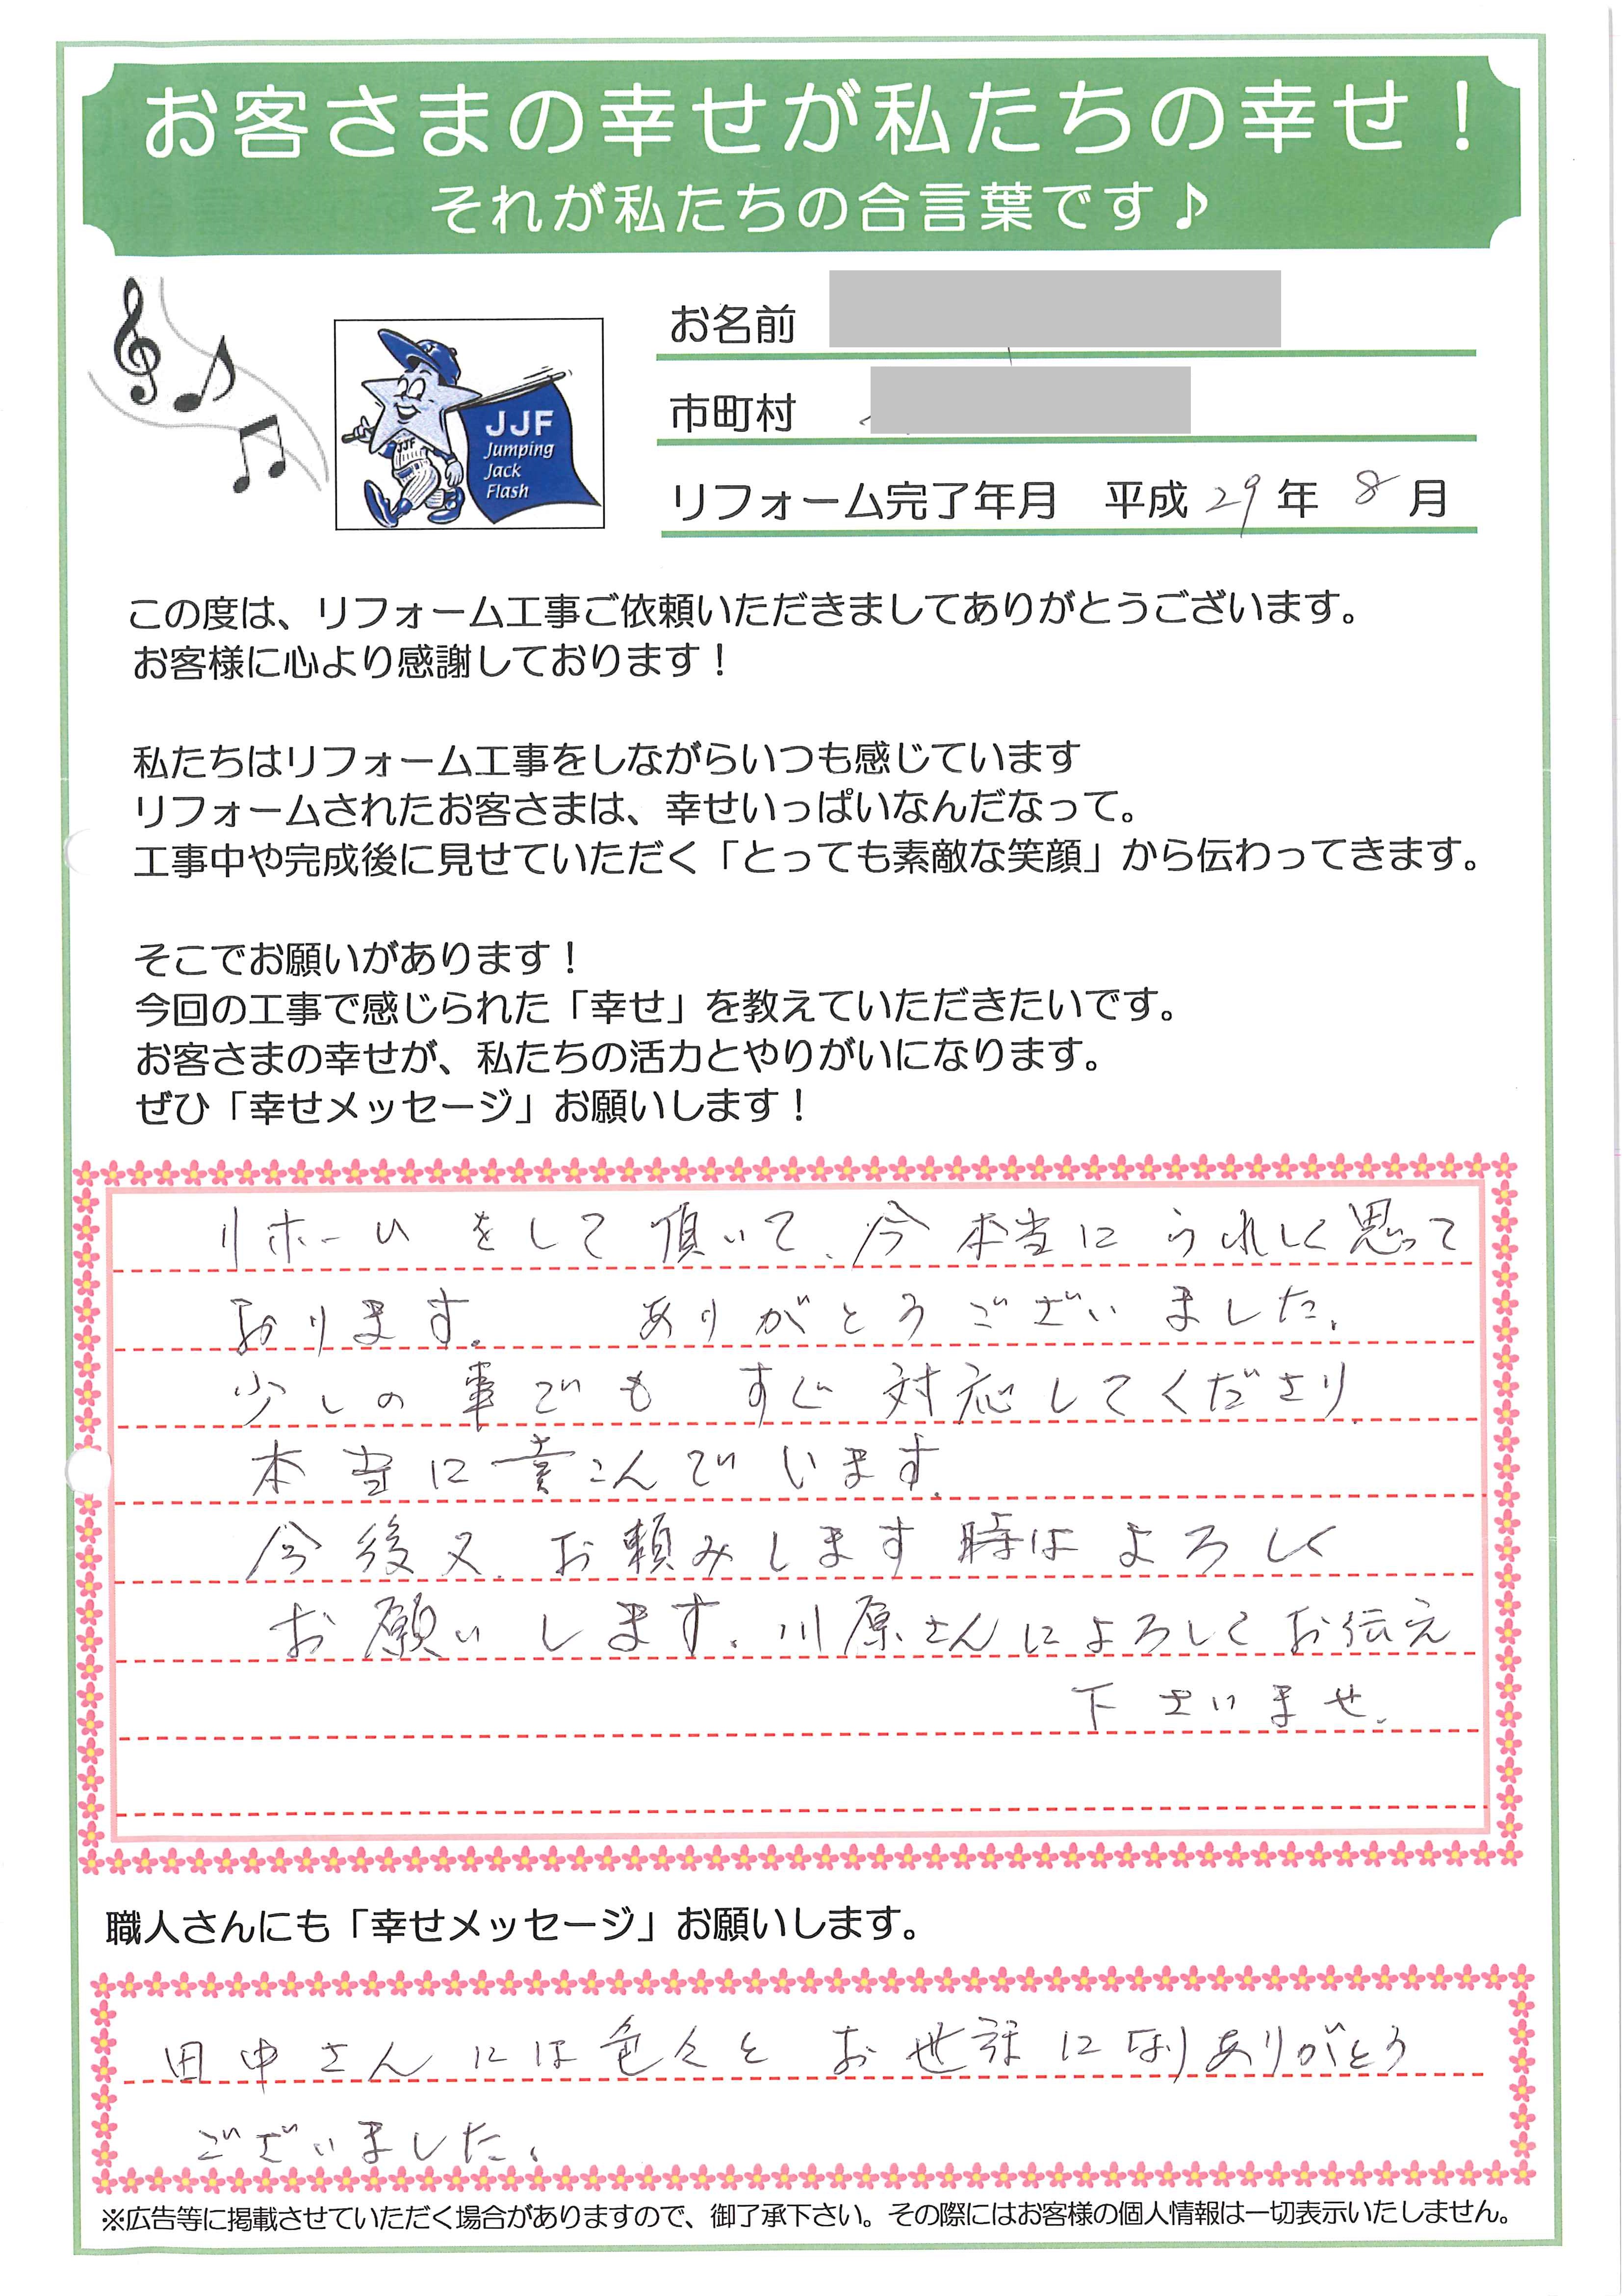 お客さまの幸せが私たちの幸せ！
それが私たちの合言葉です♪
お名前
市町村
リフォーム完了年月　平成 29 年 8 月
J
JJF
JJF
Jumping
Jack
Flash
この度は、リフォーム工事ご依頼いただきましてありがとうございます。
お客様に心より感謝しております！
私たちはリフォーム工事をしながらいつも感じています
リフォームされたお客さまは、幸せいっぱいなんだなって。
工事中や完成後に見せていただく「とっても素敵な笑顔」から伝わってきます。
そこでお願いがあります！
今回の工事で感じられた「幸せ」を教えていただきたいです。
お客さまの幸せが、私たちの活力とやりがいになります。
ぜひ「幸せメッセージ」お願いします！
リホームをして頂いて、今本当にうれしく思って
おります。　ありがとうございました。
少しの事でも すぐ 対応してくださり、
本当に喜こんでいます。
今後又、お頼みします時はよろしく
お願いします。川原さんによろしくお伝え
下さいませ。
職人さんにも「幸せメッセージ」お願いします。
田中さんには色々とお世話になりありがとう
ございました。
※広告等に掲載させていただく場合がありますので、御了承下さい。その際にはお客様の個人情報は一切表示いたしません。